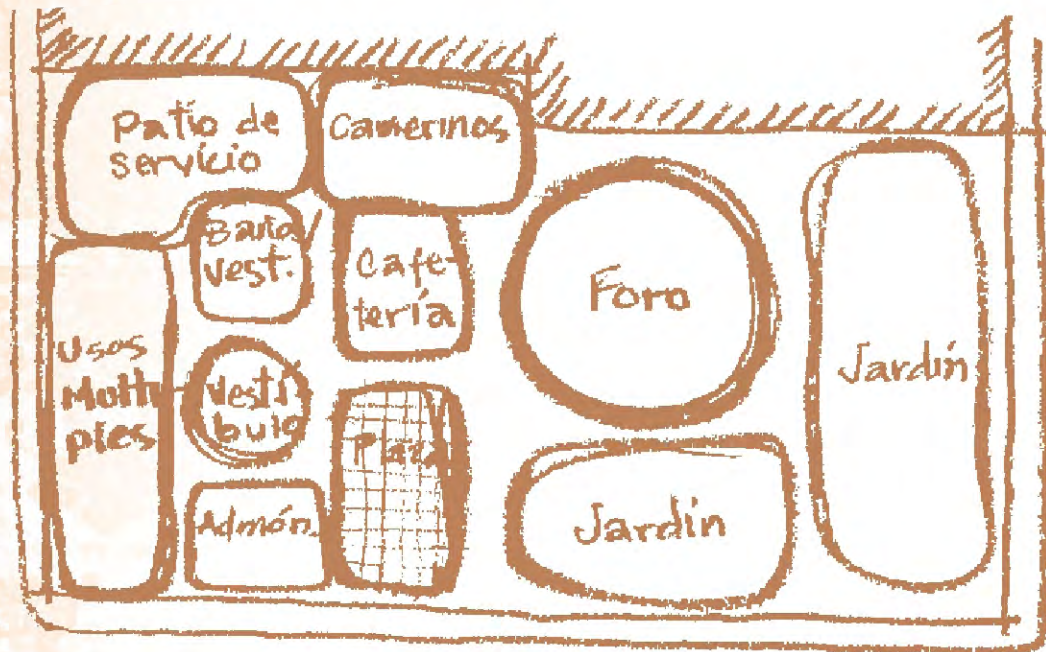 Patio de
servicio
Camerinos
Baño/
vest.
Cafe-
tería
Foro
Jardín
Usos
Multi-
ples
Vestí-
bulo
Plaza
Admón.
Jardín